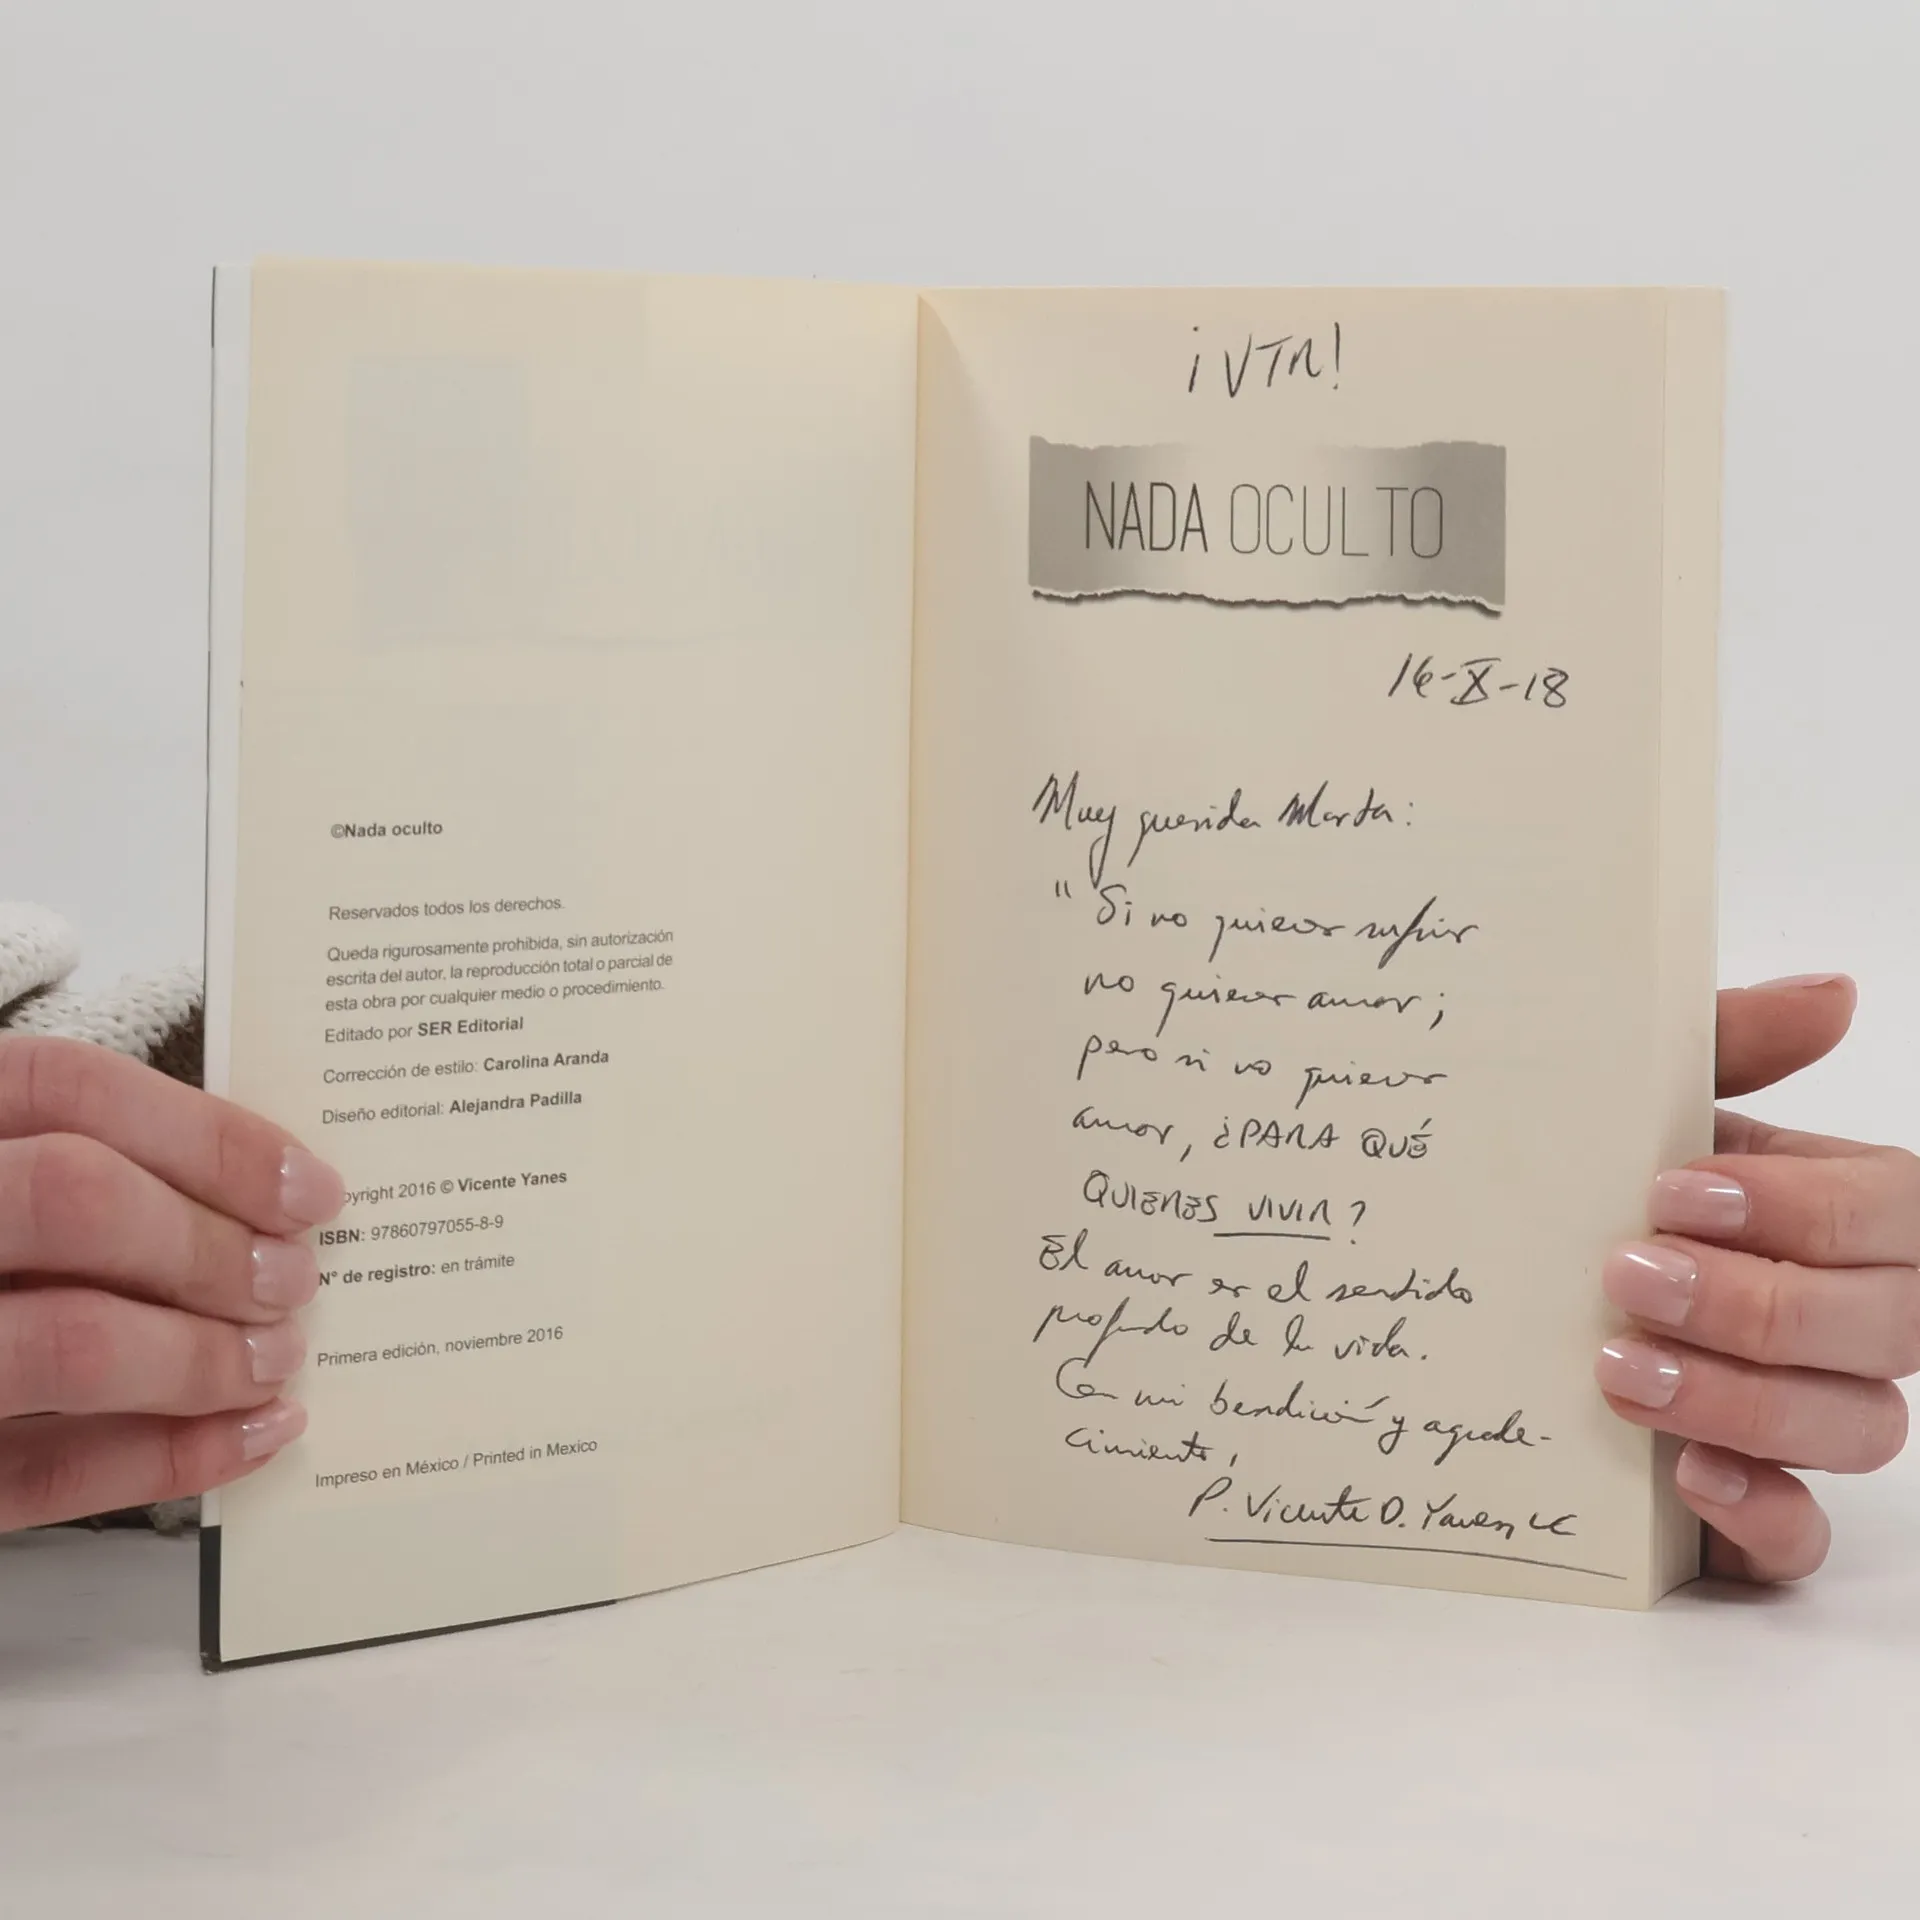 ©Nada oculto
Reservados todos los derechos.
Queda rigurosamente prohibida, sin autorización
escrita del autor, la reproducción total o parcial de
esta obra por cualquier medio o procedimiento.
Editado por SER Editorial
Corrección de estilo: Carolina Aranda
Diseño editorial: Alejandra Padilla
pyright 2016 © Vicente Yanes
ISBN: 97860797055-8-9
N° de registro: en trámite
Primera edición, noviembre 2016
Impreso en México / Printed in Mexico
¡VTR!
NADA OCULTO
16-X-18
Muy querida Marta:
"Si no quieres sufrir
no quieras amar;
pero si no quieres
amar, ¿PARA QUÉ
QUIERES VIVIR?
El amor es el sentido
profundo de la vida.
Con mi bendición y agrade-
cimiento,
P. Vicente D. Yanes, LC